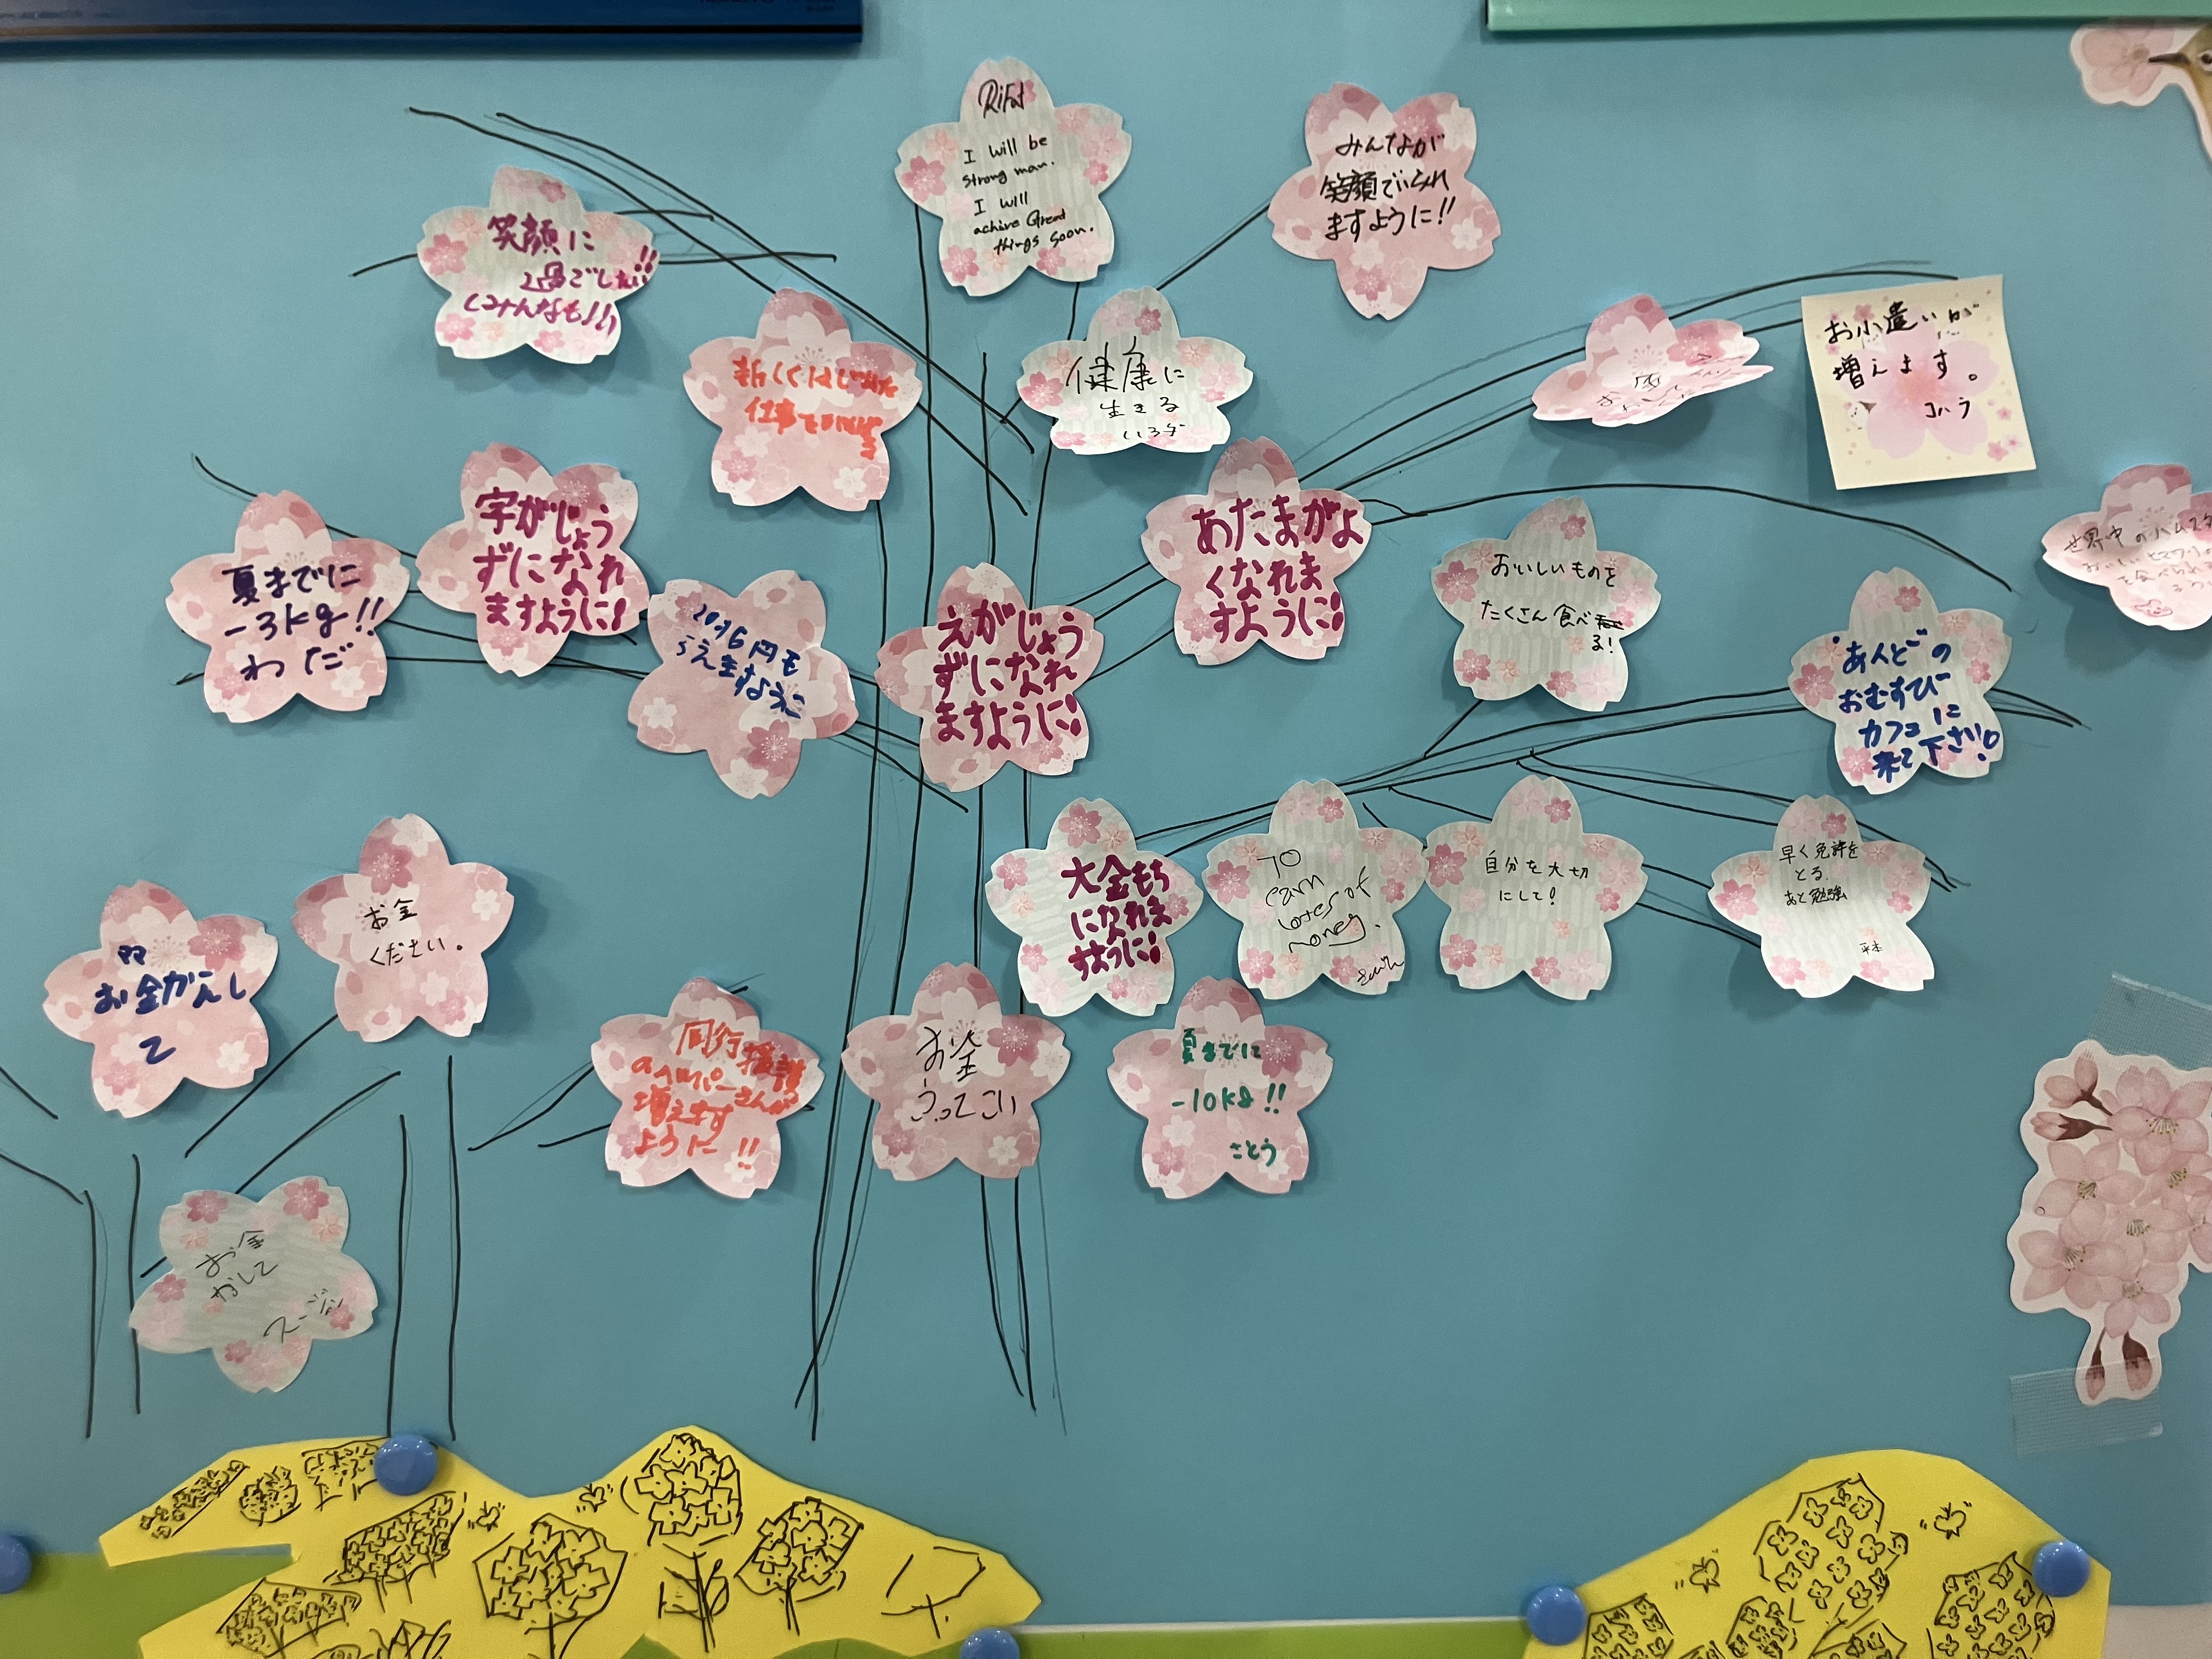 Rifat
I will be
strong man.
I will
achive Great
things soon.
みんなが
笑顔でいられ
ますように!!
笑顔に
過ごしたい!!
(みんなも!!)
仕事を
健康に
生きる
お小遣いが
増えます。
コハラ
夏までに
-3kg!!
わだ
字がじょう
ずになれ
ますように!
えがじょう
ずになれ
ますように!
あたまがよ
くなれま
すように!
おいしいものを
たくさん食べ
る!
世界中のハムスタ
あんどの
おむすび
カフェに
来て下さい!
大金もち
になれま
すように!
TO
earn
lotes of
money.
自分を大切
にして!
早く免許を
とる
あと勉強
お金
ください。
お金かんし
て
同行援護
のヘルパーさんが
増えます
ように!!
お金
ふってこい
夏までに
-10kg!!
さとう
お金
かして
スージン